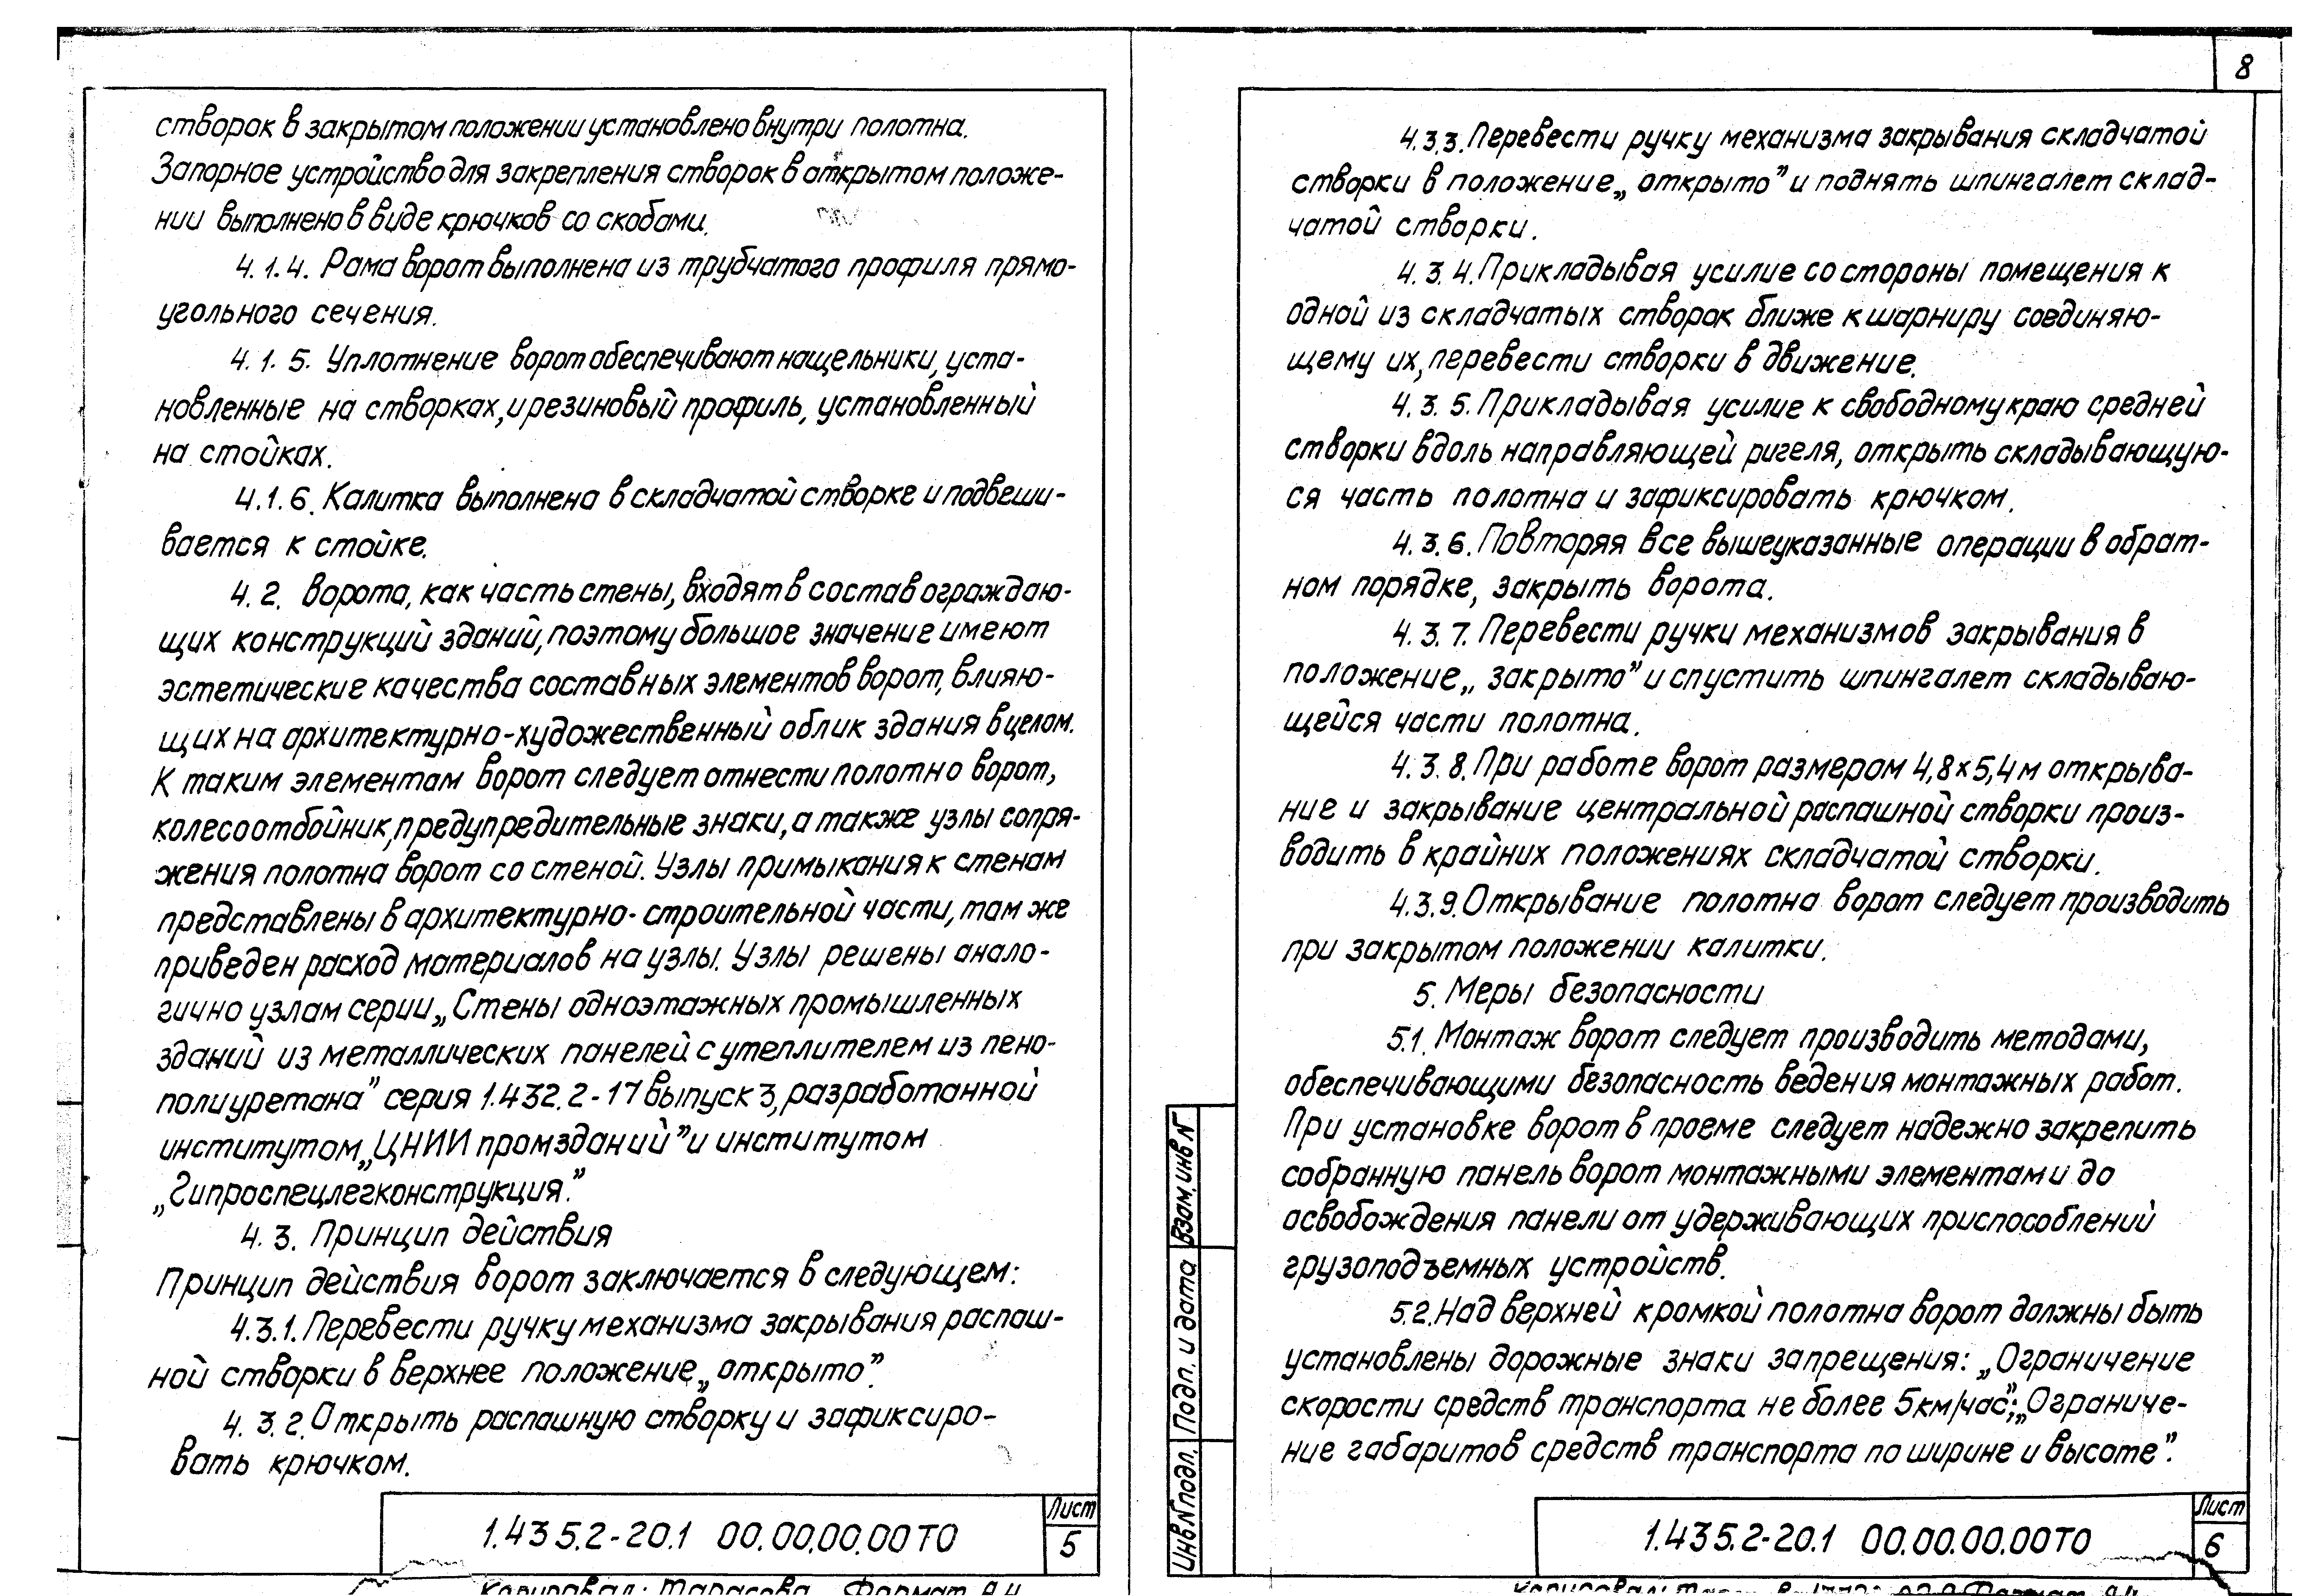 створок в закрытом положении установлено внутри полотна.
Запорное устройство для закрепления створок в открытом положе-
нии выполнено в виде крючков со скобами.
4.1.4. Рама ворот выполнена из трубчатого профиля прямо-
угольного сечения.
4.1.5. Уплотнение ворот обеспечивают нащельники, уста-
новленные на створках, и резиновый профиль, установленный
на стойках.
4.1.6. Калитка выполнена в складчатой створке и подвеши-
вается к стойке.
4.2. Ворота, как часть стены, входят в состав ограждаю-
щих конструкций зданий, поэтому большое значение имеют
эстетические качества составных элементов ворот, влияю-
щих на архитектурно-художественный облик здания в целом.
К таким элементам ворот следует отнести полотно ворот,
колесоотбойник, предупредительные знаки, а также узлы сопря-
жения полотна ворот со стеной. Узлы примыкания к стенам
представлены в архитектурно-строительной части, там же
приведен расход материалов на узлы. Узлы решены анало-
гично узлам серии „Стены одноэтажных промышленных
зданий из металлических панелей с утеплителем из пено-
полиуретана” серия 1.432.2-17 выпуск 3, разработанной
институтом „ЦНИИ промзданий” и институтом
„Гипроспецлегконструкция.”
4.3. Принцип действия
Принцип действия ворот заключается в следующем:
4.3.1. Перевести ручку механизма закрывания распаш-
ной створки в верхнее положение „открыто”.
4.3.2. Открыть распашную створку и зафиксиро-
вать крючком.
1.435.2-20.1 00.00.00.00ТО
Лист
5
Копировал: Тарасова Формат А4
8
4.3.3. Перевести ручку механизма закрывания складчатой
створки в положение „открыто” и поднять шпингалет склад-
чатой створки.
4.3.4. Прикладывая усилие со стороны помещения к
одной из складчатых створок ближе к шарниру соединяю-
щему их, перевести створки в движение.
4.3.5. Прикладывая усилие к свободному краю средней
створки вдоль направляющей ригеля, открыть складывающую-
ся часть полотна и зафиксировать крючком.
4.3.6. Повторяя все вышеуказанные операции в обрат-
ном порядке, закрыть ворота.
4.3.7. Перевести ручки механизмов закрывания в
положение „закрыто” и спустить шпингалет складываю-
щейся части полотна.
4.3.8. При работе ворот размером 4,8×5,4 м открыва-
ние и закрывание центральной распашной створки произ-
водить в крайних положениях складчатой створки.
4.3.9. Открывание полотна ворот следует производить
при закрытом положении калитки.
5. Меры безопасности
5.1. Монтаж ворот следует производить методами,
обеспечивающими безопасность ведения монтажных работ.
При установке ворот в проеме следует надежно закрепить
собранную панель ворот монтажными элементами до
освобождения панели от удерживающих приспособлений
грузоподъемных устройств.
5.2. Над верхней кромкой полотна ворот должны быть
установлены дорожные знаки запрещения: „Ограничение
скорости средств транспорта не более 5 км/час”; „Ограниче-
ние габаритов средств транспорта по ширине и высоте”.
Взам. инв N
Подп. и дата
Инв N подл.
1.435.2-20.1 00.00.00.00ТО
Лист
6
Копировал: Формат А4